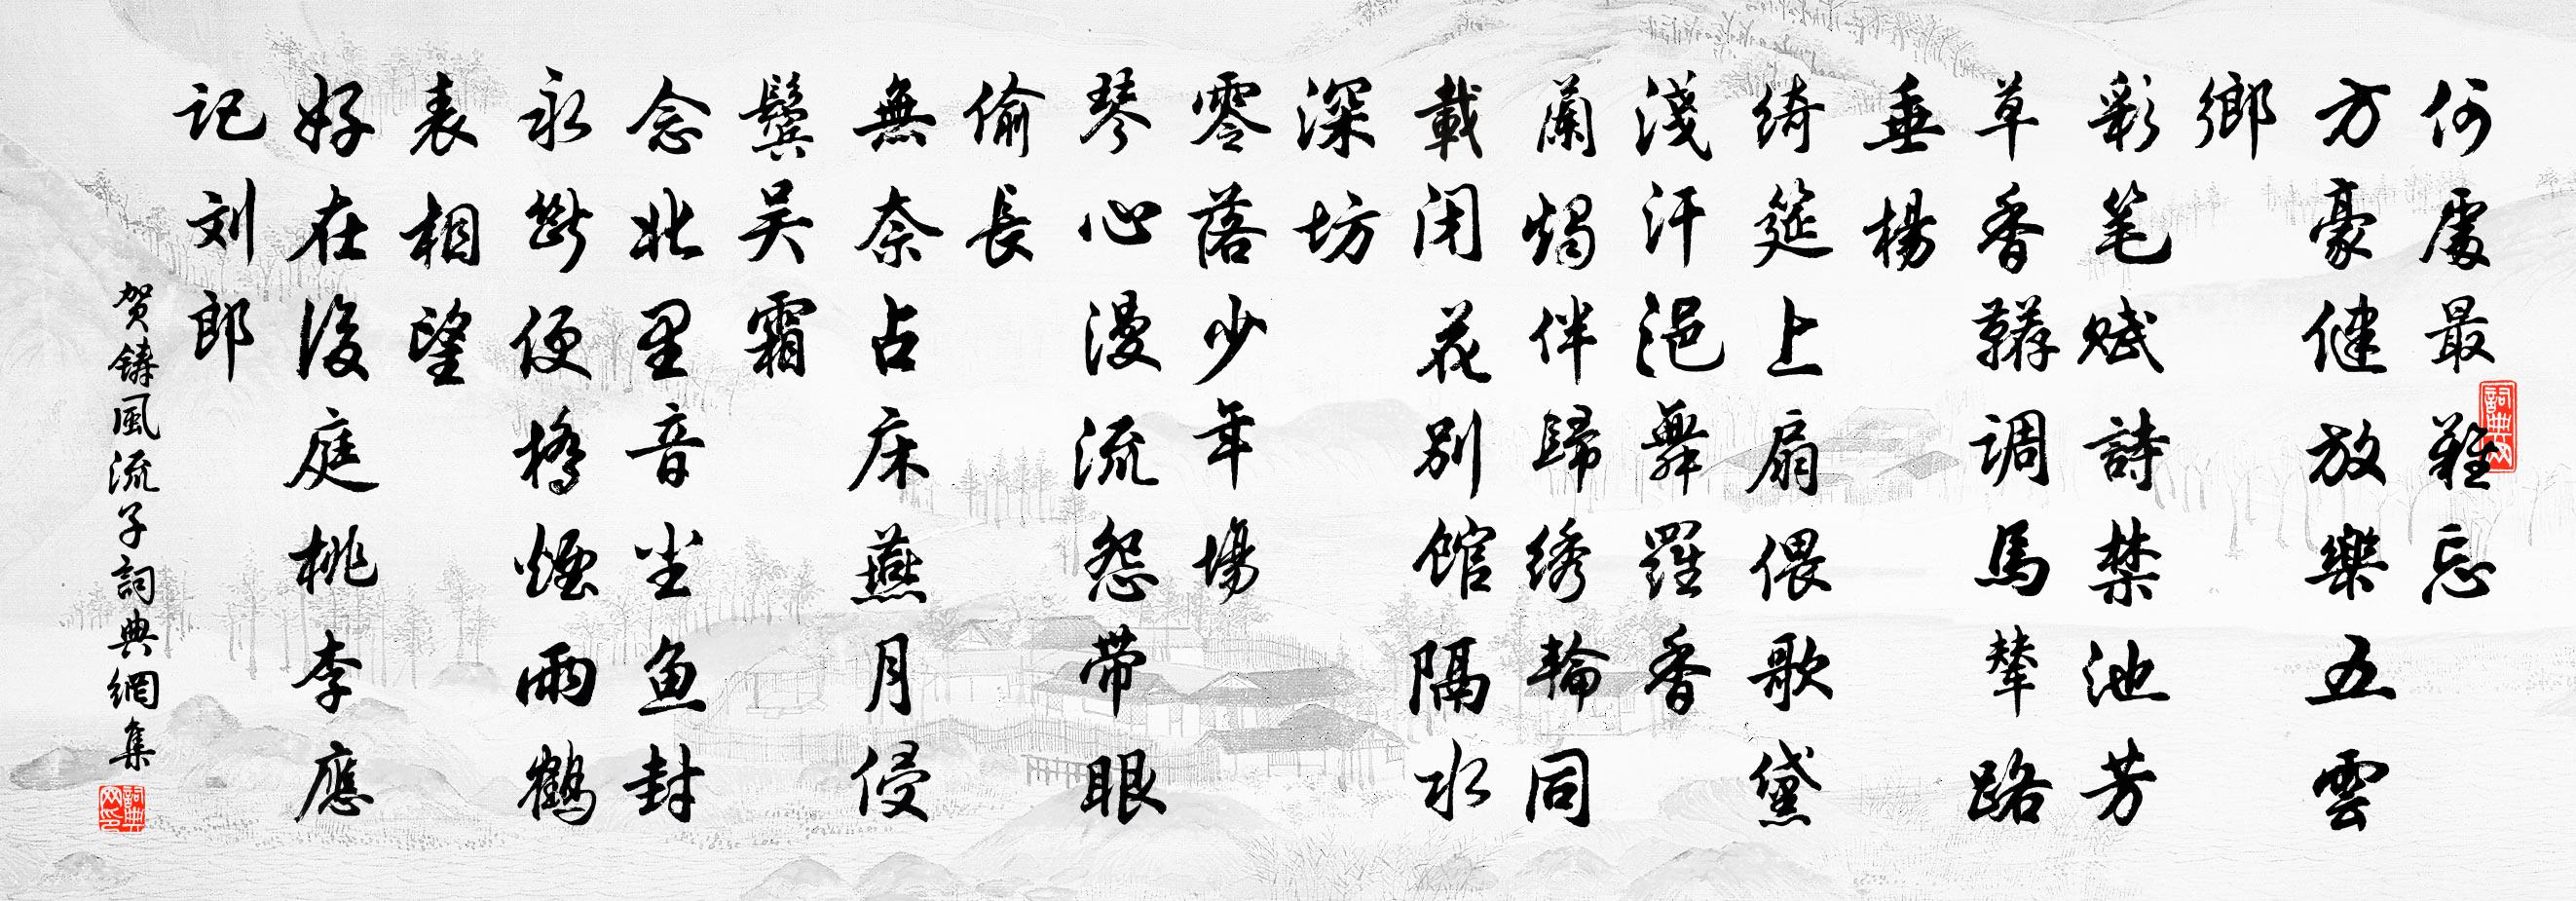 何處最難忘
方豪健放樂五雲
鄉
彩笔赋詩禁池芳
草香鞯调馬輦路
垂楊
綺筵上扇偎歌黛
淺汗浥舞羅香
蘭燭伴歸綉輪同
載閉花別館隔水
深坊
零落少年場
琴心漫流怨带眼
偷長
無奈占床燕月侵
鬓吴霜
念北里音尘鱼封
永斷便橋煙雨鶴
表相望
好在後庭桃李應
记刘郎
贺鑄風流子詞典網集
詞典网
詞典网印